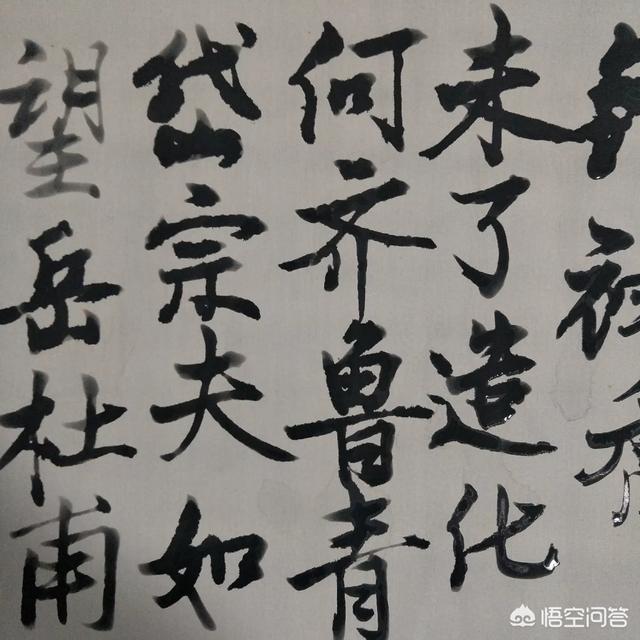 望岳杜甫
岱宗夫如
何齐鲁青
未了造化
悟空问答